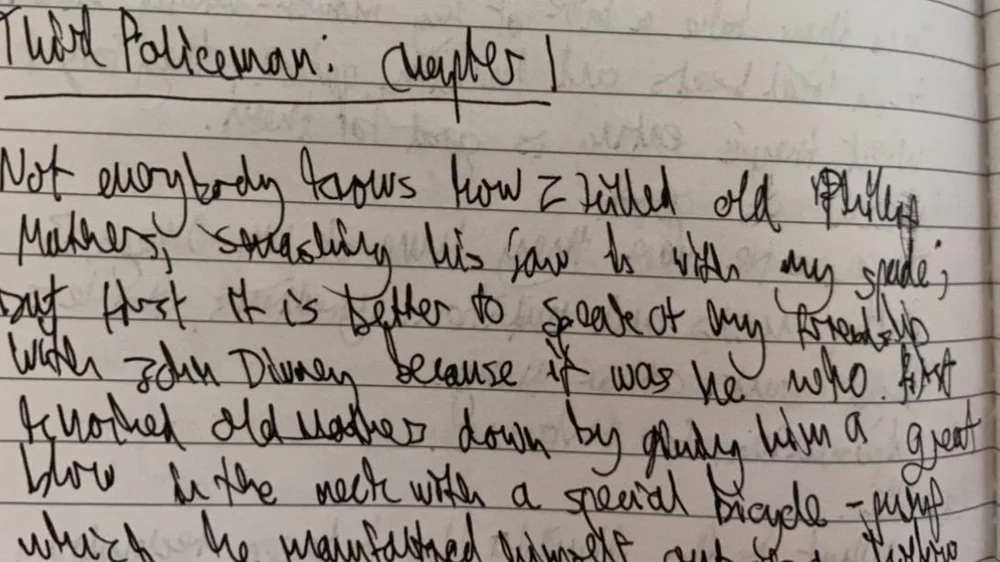 Third Policeman: Chapter 1
Not everybody knows how I killed old Phillip
Mathers, smashing his jaw in with my spade;
but first it is better to speak of my friendship
with John Divney because it was he who first
knocked old Mathers down by giving him a great
blow in the neck with a special bicycle-pump
which he manufactured himself out of a hollow